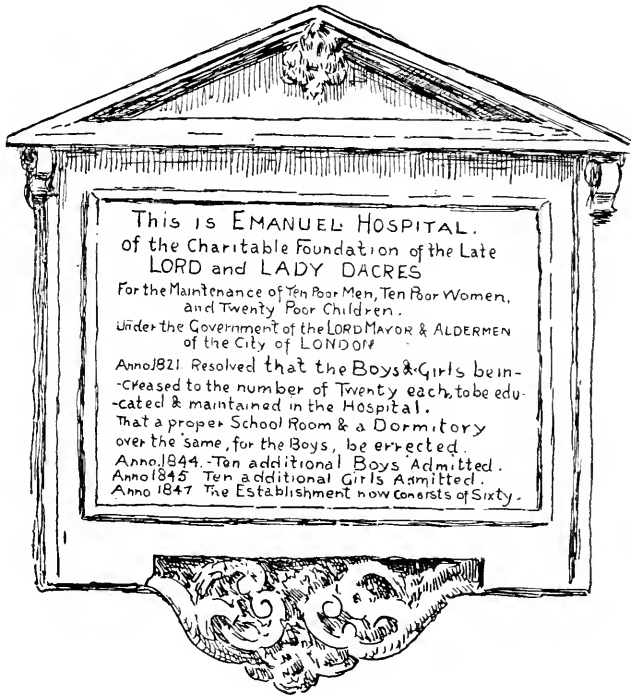 This is Emanuel Hospital.
of the Charitable Foundation of the Late
LORD and LADY DACRES
For the Maintenance of Ten Poor Men, Ten Poor Women,
and Twenty Poor Children.
Under the Government of the LORD MAYOR & ALDERMEN
of the City of LONDON
Anno 1821. Resolved that the Boys & Girls be in-
-creased to the number of Twenty each, to be edu-
-cated & maintained in the Hospital.
That a proper School Room & a Dormitory
over the same, for the Boys, be errected.
Anno, 1844.-Ten additional Boys Admitted.
Anno 1845 Ten additional Girls Admitted.
Anno 1847 The Establishment now consists of Sixty.